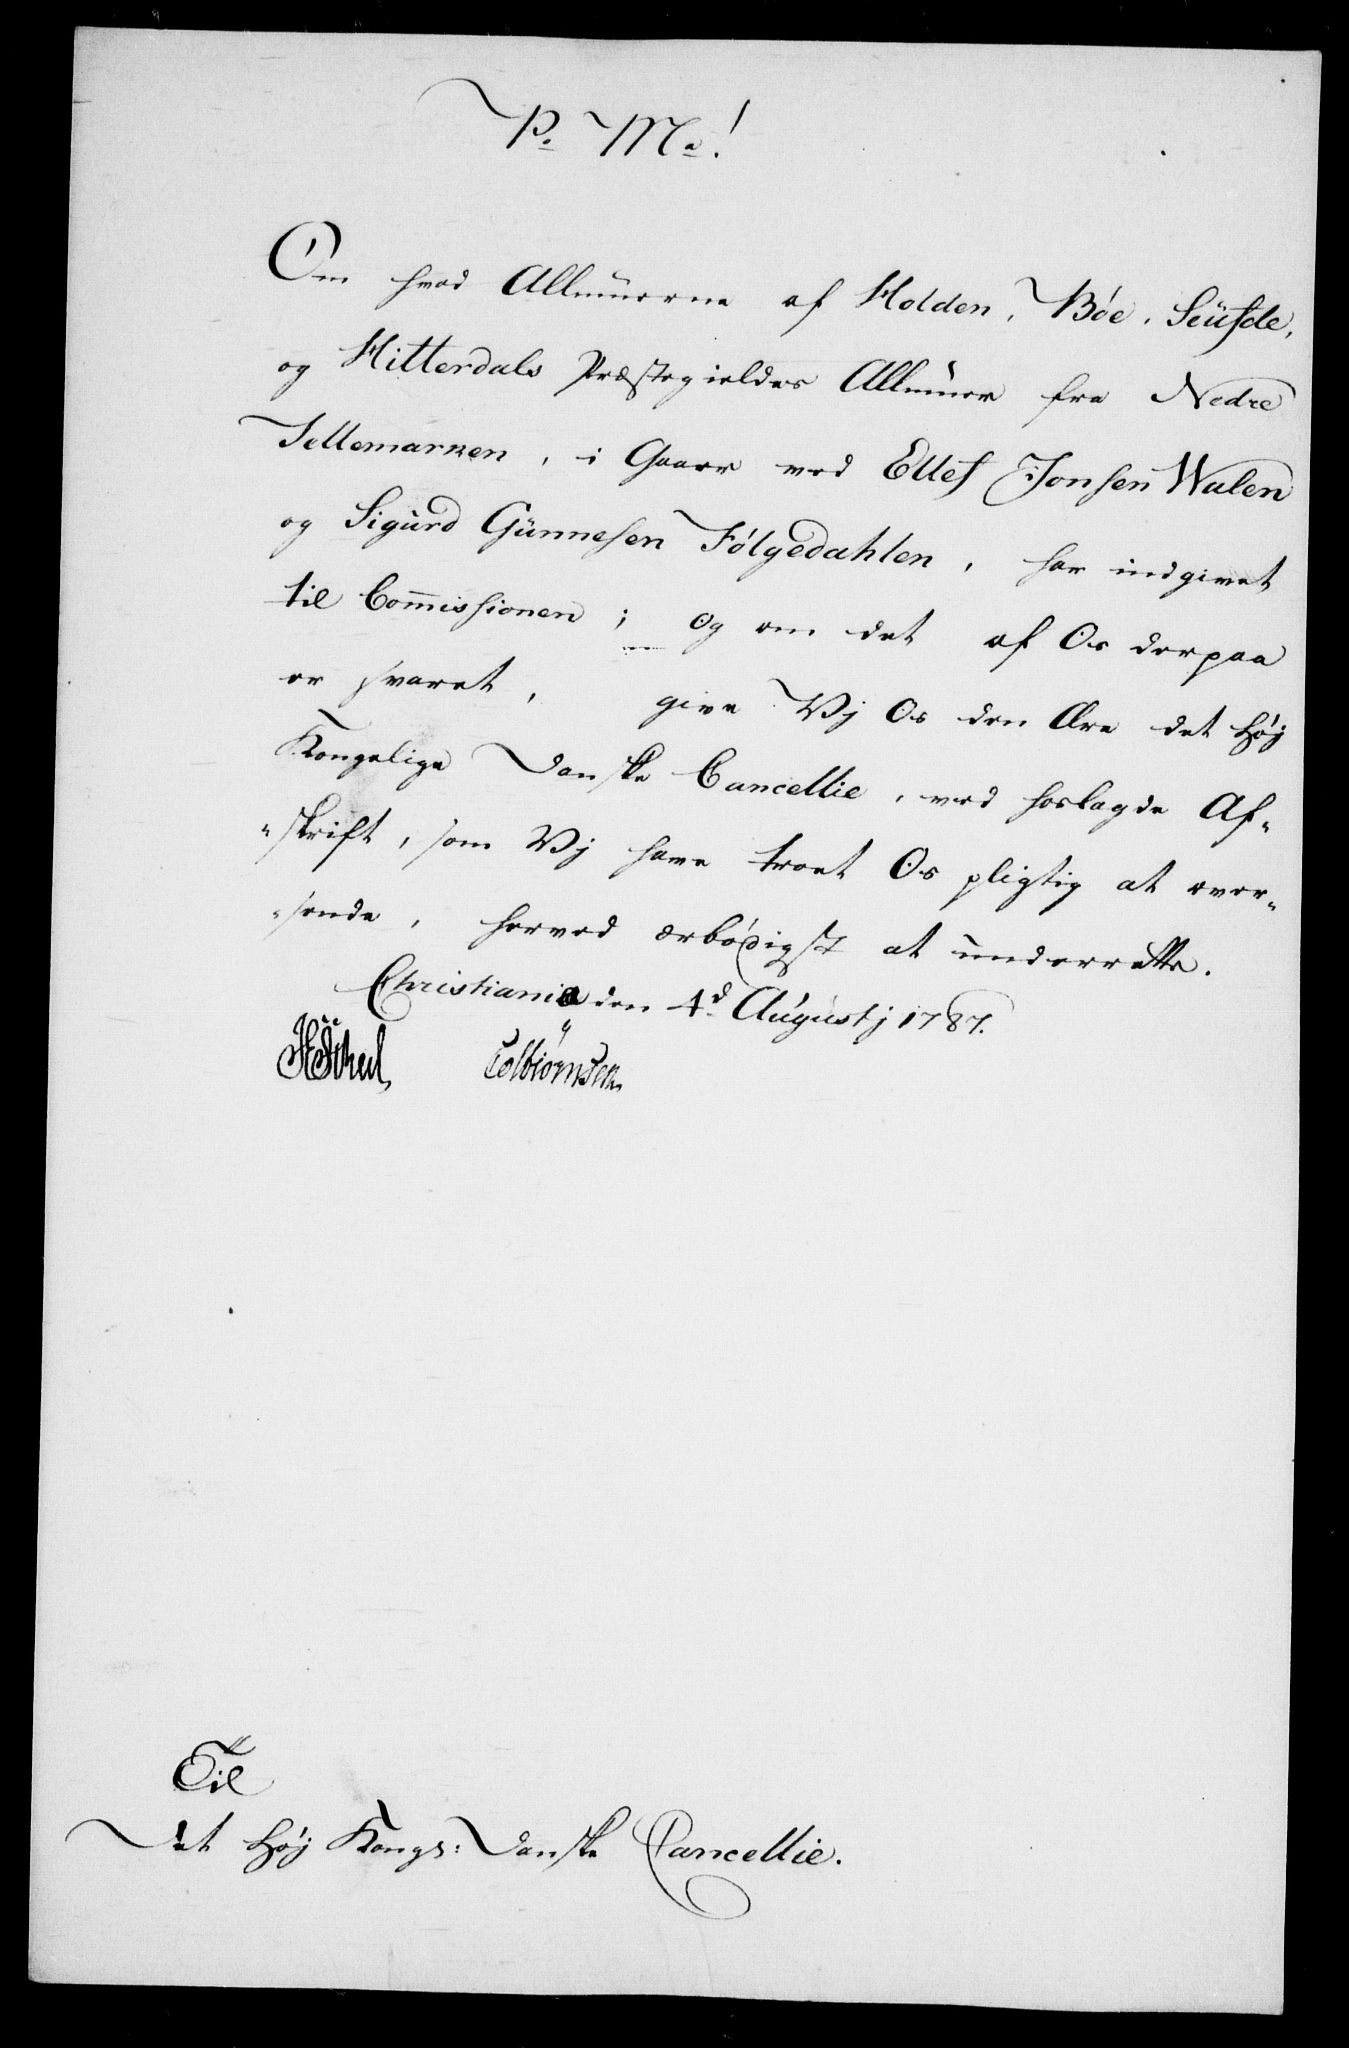 P. M:!
Om hvad Almuerne af Holden, Bøe, Seüfde,
og Hitterdals Præstegieldes Allmuer fra Nedre
Tellemarken, i Gaaer ved Ellef Jonsen Walen
og Sigurd Günnesen Følgedahlen, har indgivet
til Com̄issionen; og om det af Os derpaa
er svaret, give Vj Os den Ære det høj
Kongelige Danske Cancellie, ved hoslagde Af-
skrift, som Vj have troet Os pligtig at over-
sende, herved ærbødigst at underrette.
Christiania den 4d Augustj 1787.
Colbiørnsen.
Til
Det høj Kongs: Danske Cancellie.